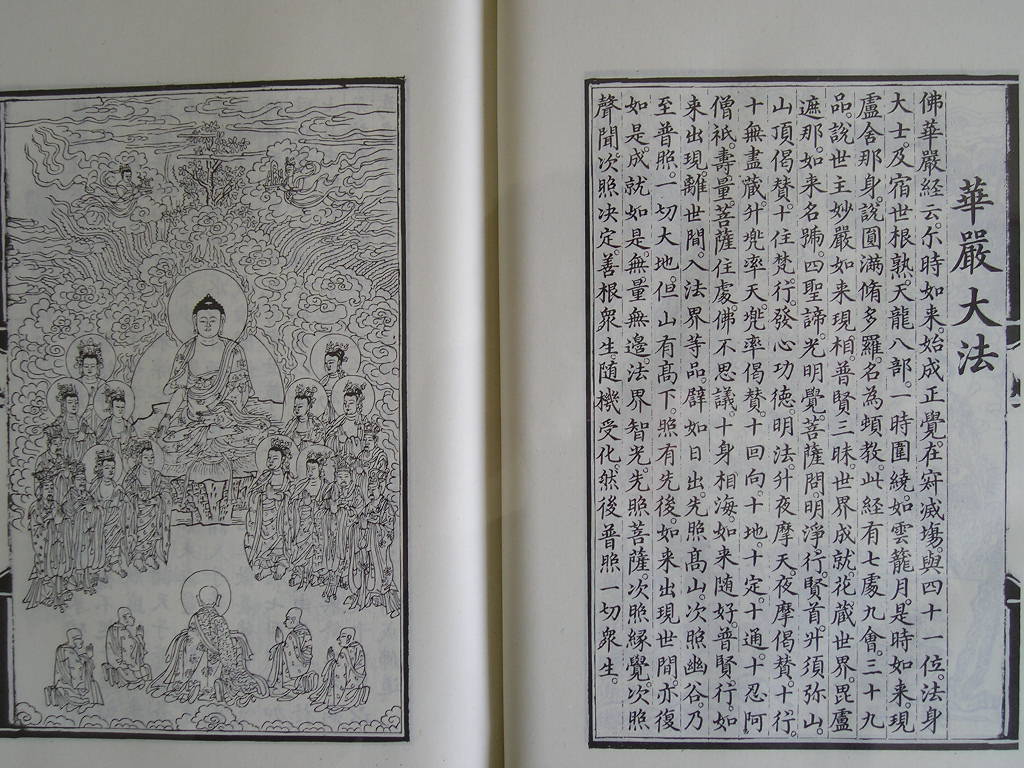 華嚴大法
佛華嚴経云。尒時如来。始成正覺。在㝎滅塲。與四十一位。法身
大士。及宿世根熟。天龍八部。一時圍繞。如雲籠月。是時如来。現
盧舍那身。說圓滿脩多羅。名為頓教。此経有七處九會。三十九
品。說世主妙嚴。如来現相。普賢三昧。世界成就。花蔵世界。毘盧
遮那。如来名号。四聖諦。光明覺。菩薩問明。淨行。賢首。升須弥山。
山頂偈賛。十住。梵行。發心功徳。明法。升夜摩天。夜摩偈賛。十行。
十無盡蔵。升兠率天。兠率偈賛。十回向。十地。十定。十通。十忍。阿
僧祇。壽量。菩薩住處。佛不思議。十身相海。如来随好。普賢行。如
来出現。離世間。入法界等品。辟如日出。先照髙山。次照幽谷。乃
至普照。一切大地。但山有髙下。照有先後。如来出現世間。亦復
如是。成就如是。無量無邉。法界智光。先照菩薩。次照緣覺。次照
聲聞。次照决定。善根衆生。随機受化。然後普照一切衆生。